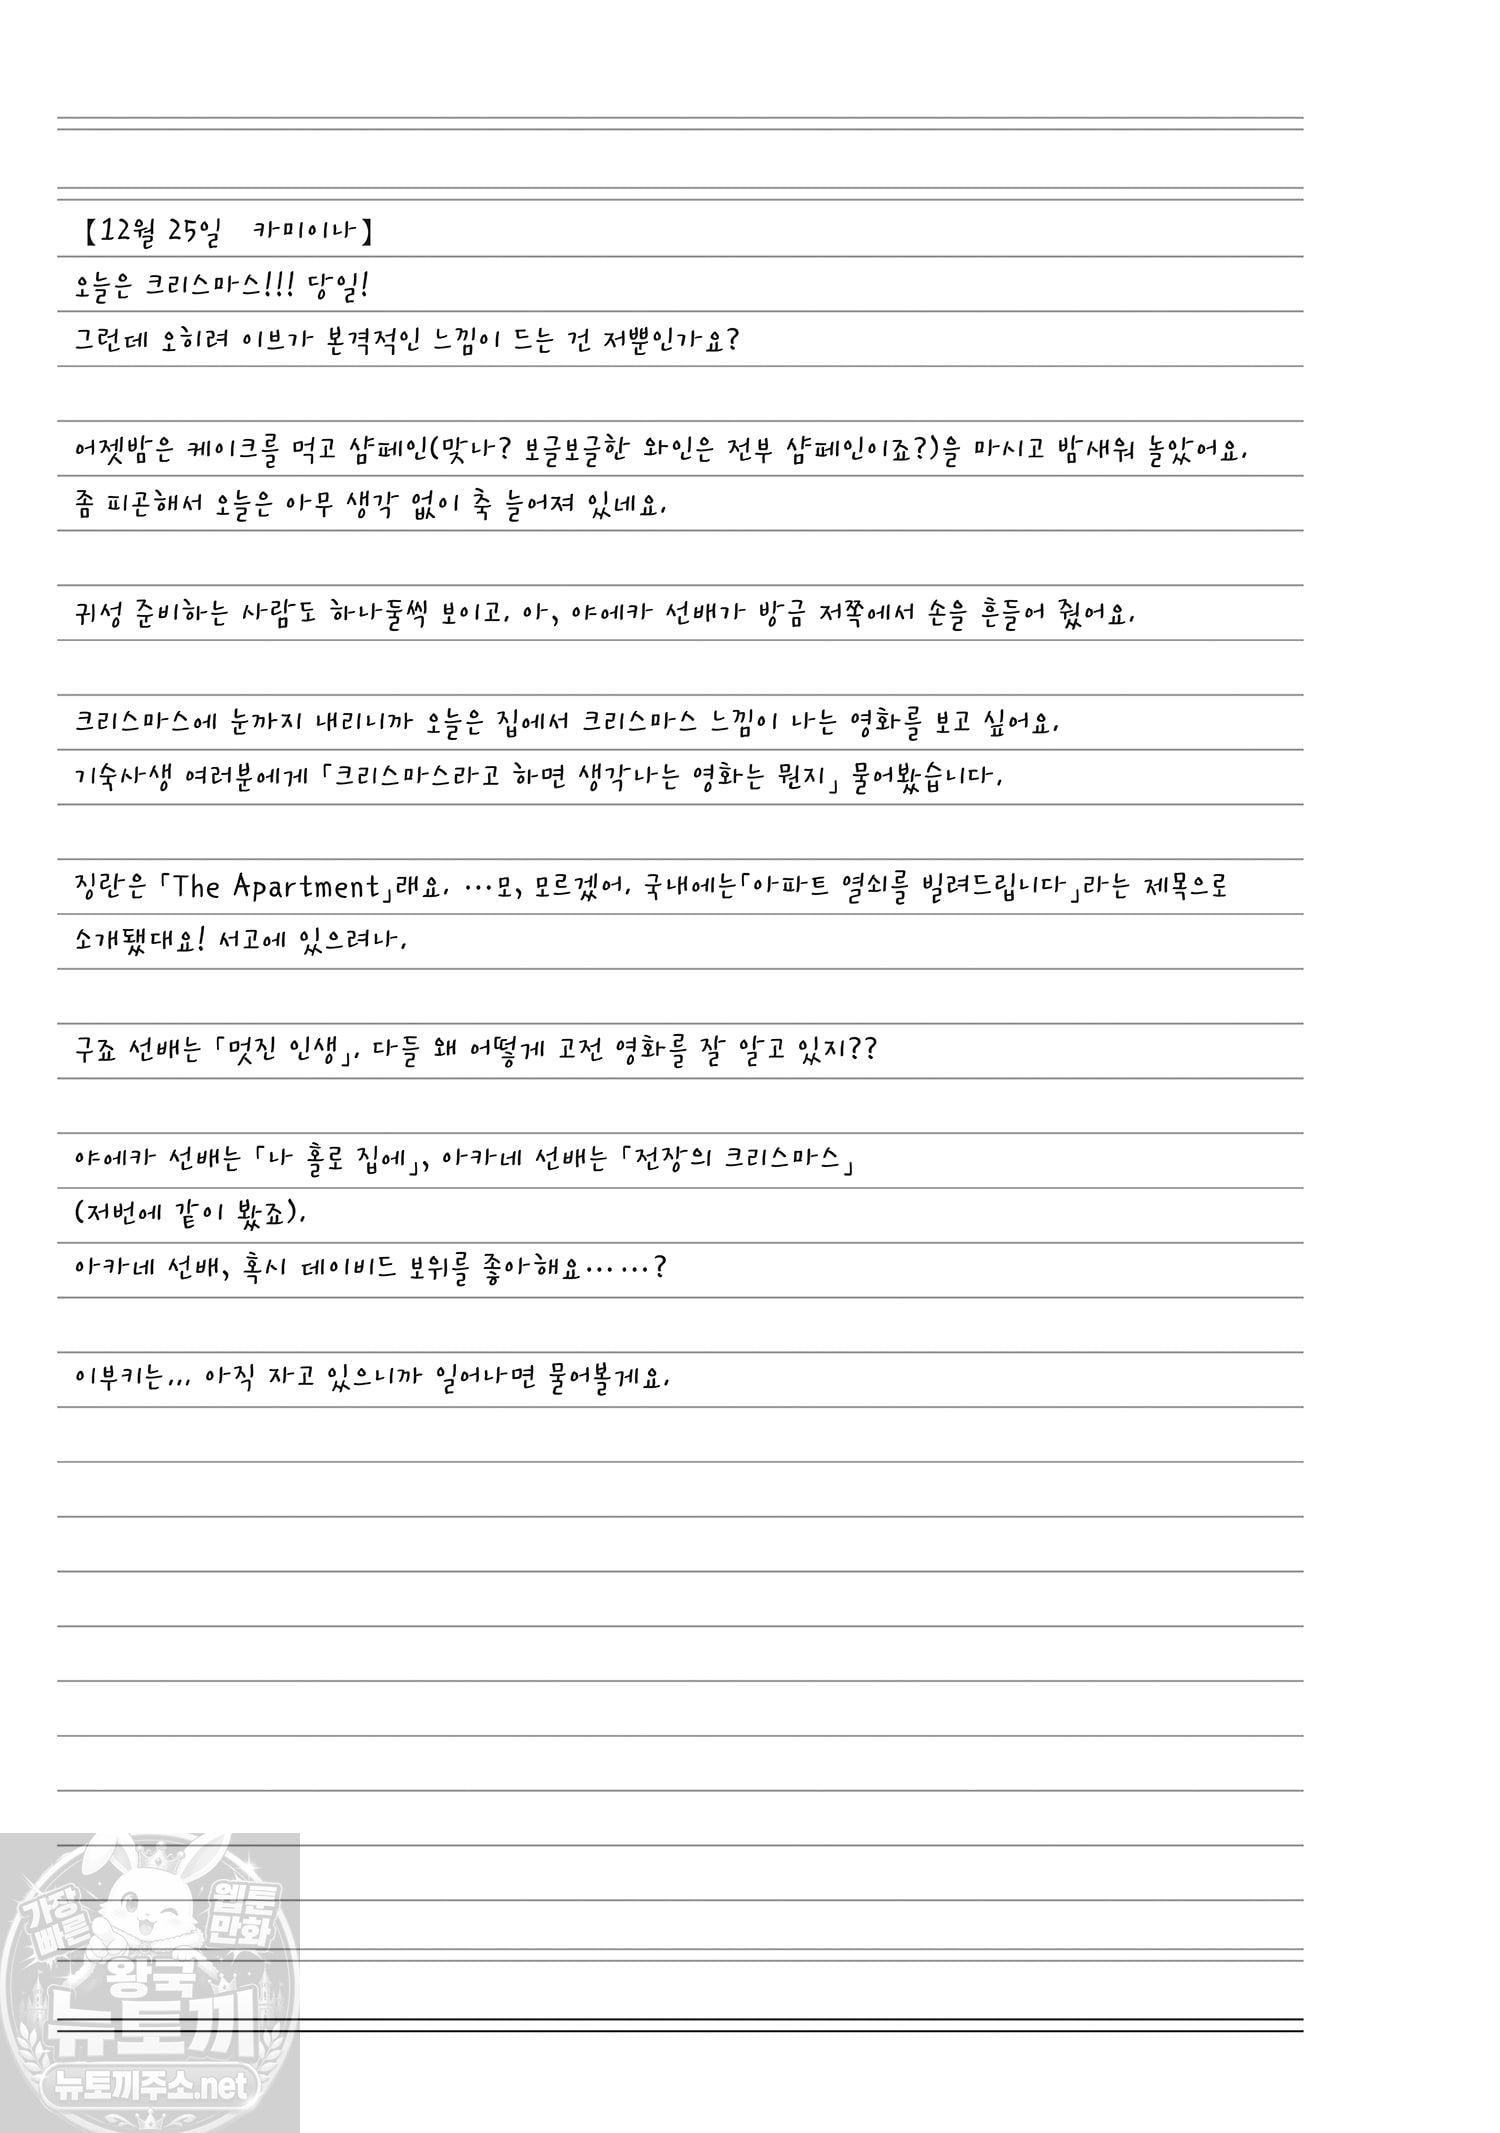 【12월 25일 카미이나】
오늘은 크리스마스!!! 당일!
그런데 오히려 이브가 본격적인 느낌이 드는 건 저뿐인가요?
어젯밤은 케이크를 먹고 샴페인(맞나? 보글보글한 와인은 전부 샴페인이죠?)을 마시고 밤새워 놀았어요.
좀 피곤해서 오늘은 아무 생각 없이 축 늘어져 있네요.
귀성 준비하는 사람도 하나둘씩 보이고. 아, 야에카 선배가 방금 저쪽에서 손을 흔들어 줬어요.
크리스마스에 눈까지 내리니까 오늘은 집에서 크리스마스 느낌이 나는 영화를 보고 싶어요.
기숙사생 여러분에게 「크리스마스라고 하면 생각나는 영화는 뭔지」 물어봤습니다.
징란은 「The Apartment」래요. …모, 모르겠어. 국내에는「아파트 열쇠를 빌려드립니다」라는 제목으로
소개됐대요! 서고에 있으려나.
구죠 선배는 「멋진 인생」. 다들 왜 어떻게 고전 영화를 잘 알고 있지??
야에카 선배는 「나 홀로 집에」, 아카네 선배는 「전장의 크리스마스」
(저번에 같이 봤죠).
아카네 선배, 혹시 데이비드 보위를 좋아해요……?
이부키는... 아직 자고 있으니까 일어나면 물어볼게요.
가장
빠른
웹툰
만화
왕국
뉴토끼
뉴토끼주소.net